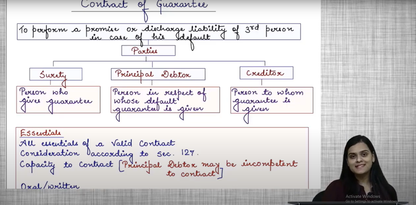 Contract of Guarantee
To perform a promise or discharge liability of 3rd person
in case of his default
Parties
Surety
Principal Debtor
Creditor
Person who
gives guarantee
Person in respect of
whose default
guarantee is given
Person to whom
guarantee is
given
Essentials
All essentials of a Valid Contract
Consideration according to sec. 127.
Capacity to Contract [Principal Debtor may be incompetent
to contract]
Oral/written
Activate Windows